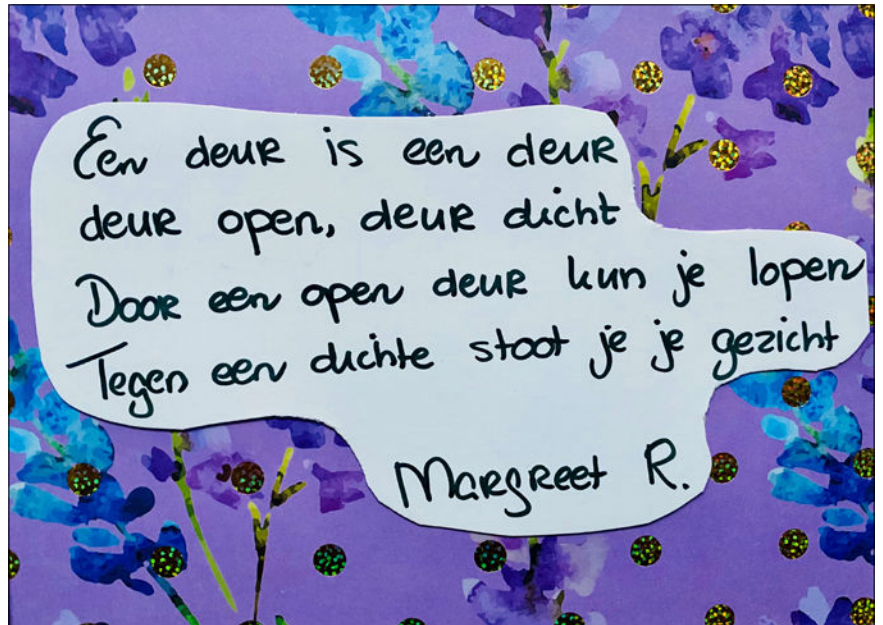 Een deur is een deur
deur open, deur dicht
Door een open deur kun je lopen
Tegen een dichte stoot je je gezicht
Margreet R.